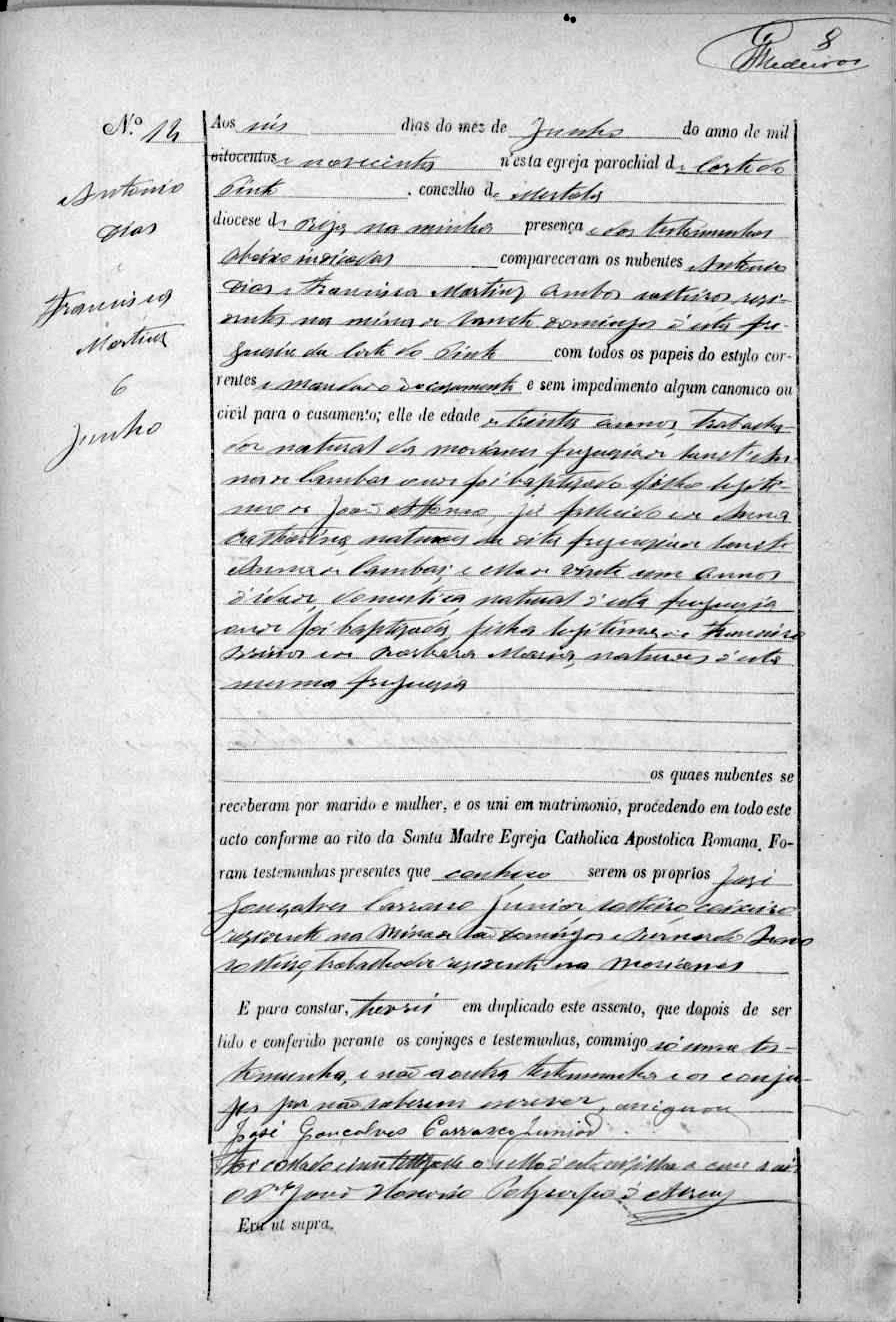 8
Medeiros
N.º 12
Antonio
Dias
e
Francisca
Martins
6
Junho
Aos seis dias do mez de Junho do anno de mil
oitocentos e novecentos n'esta egreja parochial de Corte do
Pinto, concelho de Mertola
diocese de Beja, na minha presença e das testemunhas
abaixo indicadas compareceram os nubentes Antonio
Dias e Francisca Martins ambos solteiros resi-
dentes na mina de Sam Domingos d'esta fre-
guesia da Corte do Pinto com todos os papeis do estylo cor-
rentes e mandado de casamento e sem impedimento algum canonico ou
civil para o casamento; elle de edade de trinta annos, trabalha-
dor natural da freguesia de Sant'An-
na de Cambas onde foi baptizado filho legiti-
mo de João Affonso, já fallecido e de Anna
Catharina, naturaes da dita freguesia de Sant'
Anna de Cambas; e ella de vinte um annos
d'idade, domestica natural d'esta freguesia
onde foi baptizada, filha legitima de Francisco
e de Barbara Maria, naturaes d'esta
mesma freguesia
os quaes nubentes se
receberam por marido e mulher, e os uni em matrimonio, procedendo em todo este
acto conforme ao rito da Santa Madre Egreja Catholica Apostolica Romana. Fo-
ram testemunhas presentes que conheço serem os proprios José
Gonçalves Carrasco Junior, solteiro caixeiro
residente na Mina de São Domingos e Bernardo
solteiro, trabalhador residente
E para constar, lavrei em duplicado este assento, que depois de ser
lido e conferido perante os conjuges e testemunhas, commigo só uma tes-
temunha, e não a outra testemunha e os conju-
ges por não saberem escrever, assignou
José Gonçalves Carrasco Junior
Foi collado e inutilizado o sello
O Pr. José
Era ut supra.